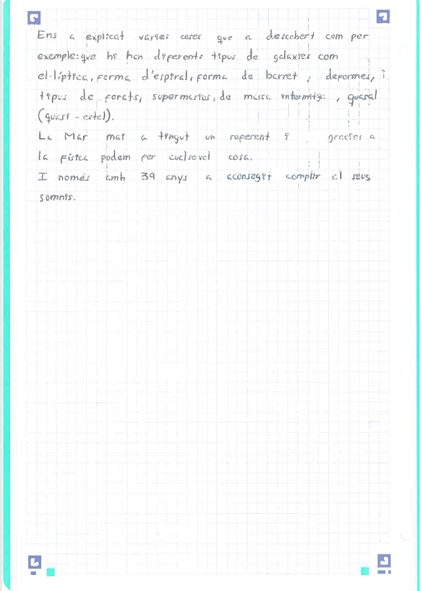 Ens a explicat varies coses que a descobert com per
exemple: que hi han diferents tipus de galaxies com
el·líptica, forma d'espiral, forma de barret, deformes, i
tipus de forats, supermasius, de massa intermitg,
(quasi-estel).
La Mar mai a tingut un referent i gracies a
la física podem fer qualsevol cosa.
I només amb 39 anys a aconsegit complir el seus
somnis.